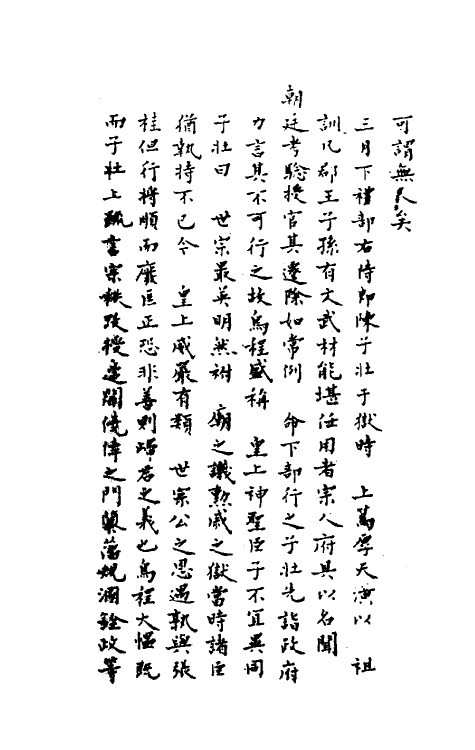 可謂無人矣
三月下禮部右侍郎陳子壯于獄時 上篤厚天潢以 祖
訓凡郡王子孫有文武材能堪任用者宗人府具以名聞
朝廷考驗授官其遷除如常例 命下部行之子壯先詣政府
力言其不可行之故烏程盛稱 皇上神聖臣子不宜異同
子壯曰 世宗最英明然祔 廟之議勲戚之獄當時諸臣
猶執持不已今 皇上威嚴有類 世宗公之恩遇孰與張
桂但行將順而廢匡正恐非善則歸君之義也烏程大慍既
而子壯上疏言宗秩改授適開僥倖之門隳藩規溷銓政等